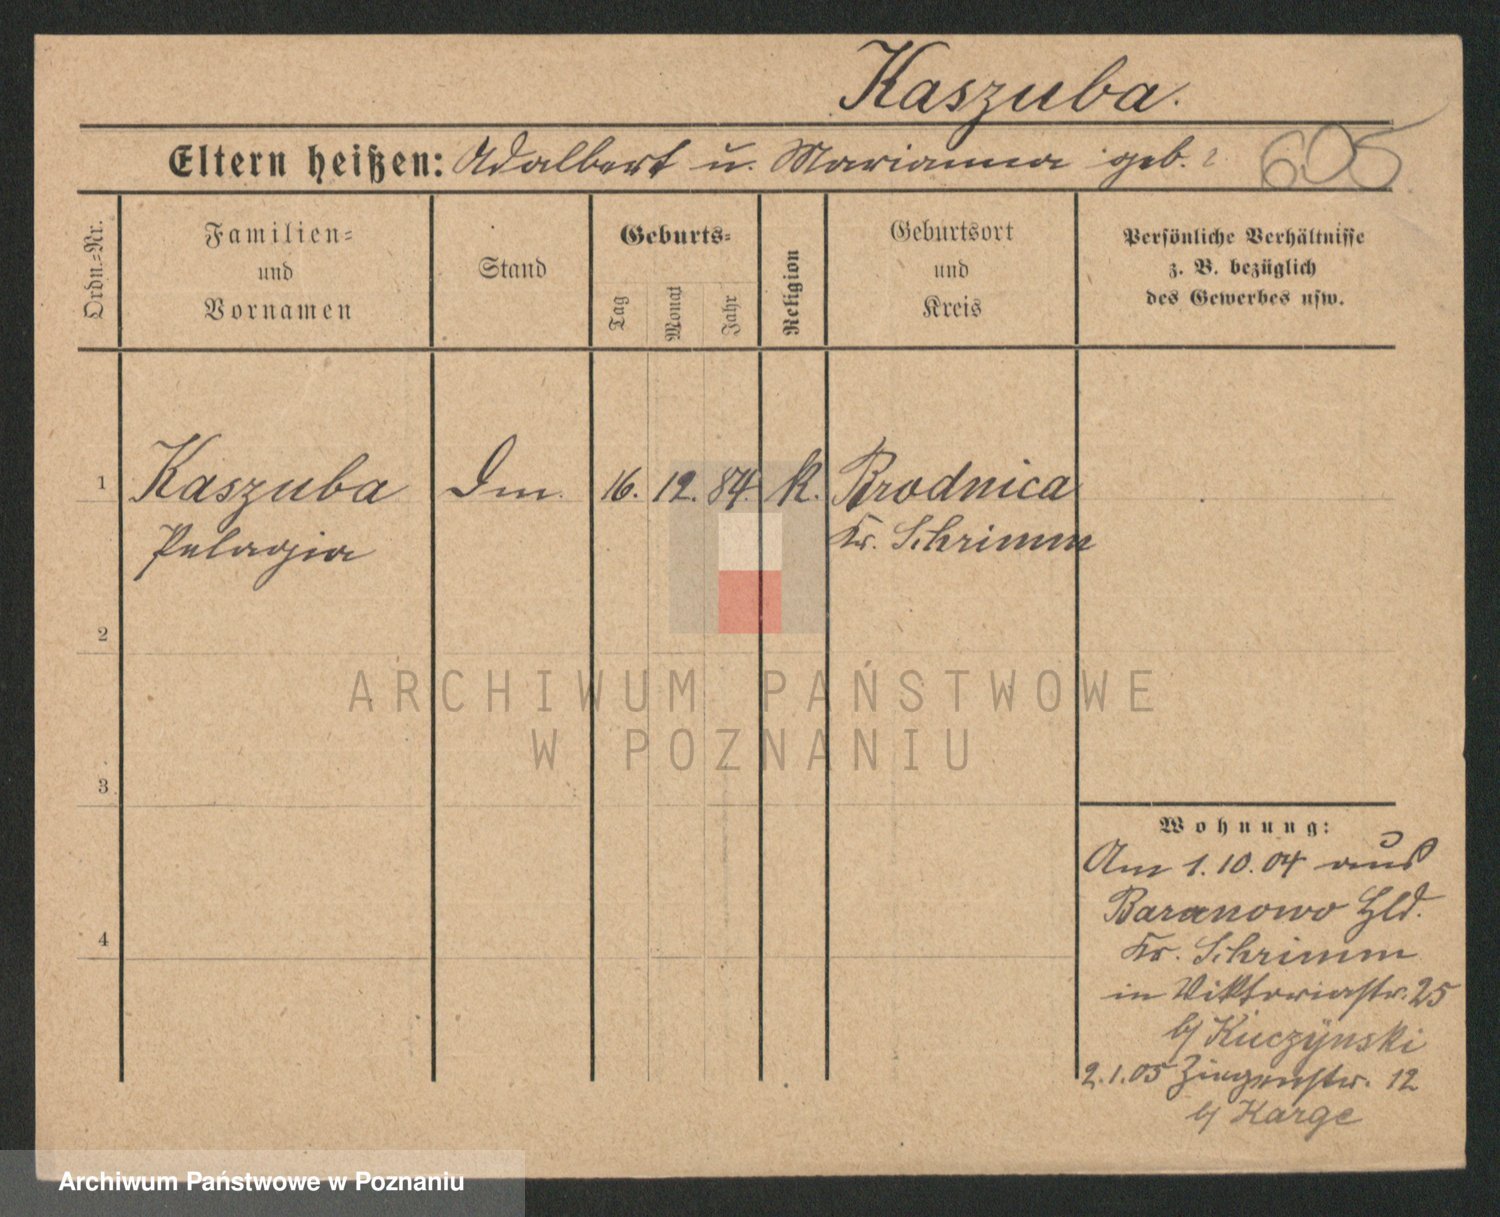 Kaszuba.
Eltern heißen: Adalbert u. Marianna geb. ?
605
Ordn.-Nr.
Familien-
und
Vornamen
Stand
Geburts-
Tag
Monat
Jahr
Religion
Geburtsort
und
Kreis
Persönliche Verhältnisse
z. B. bezüglich
des Gewerbes usw.
1 Kaszuba Dm. 16. 12. 84. k. Brodnica
Pelagia Kr. Schrimm
2
3
4
Wohnung:
Am 1.10.04 aus
Baranowo Hld.
Kr. Schrimm
in Viktoriastr. 25
b/ Kuczynski
2.1.05 Ziegenstr. 12
b/ Karge
ARCHIWUM PAŃSTWOWE
W POZNANIU
Archiwum Państwowe w Poznaniu